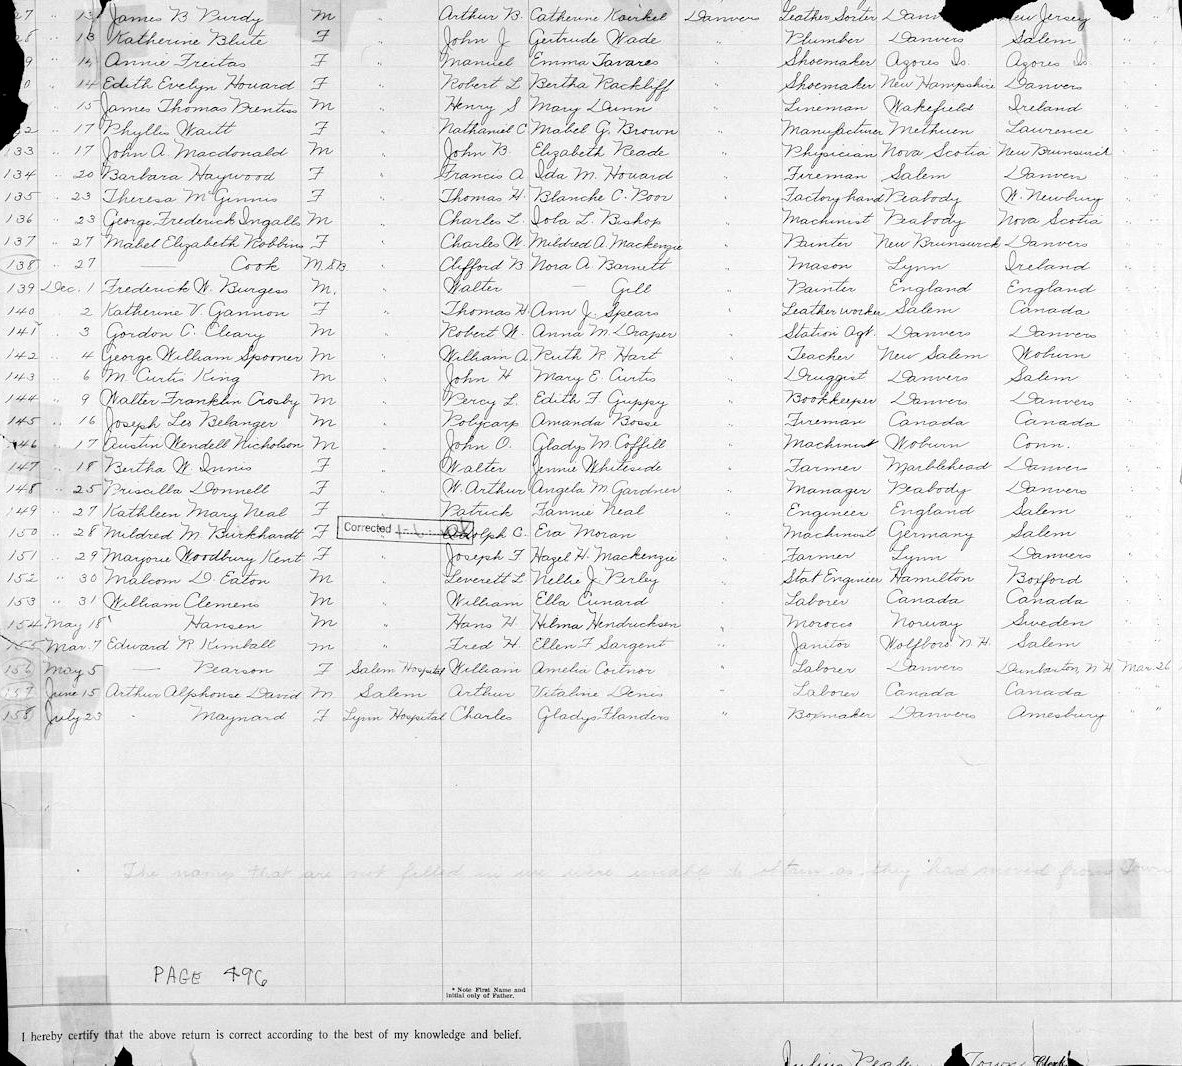 27 " 13 James B Purdy M Arthur B. Catherine Koerkel Danvers Leather Sorter New Jersey
" 13 Katherine Blute F " John J Gertrude Wade " Plumber Danvers Salem "
" 14 Annie Freitas F " Manuel Emma Tavares " Shoemaker Azores Is. Azores Is "
" 14 Edith Evelyn Howard F " Robert L Bertha Rackliff " Shoemaker New Hampshire Danvers "
" 15 James Thomas Prentiss M " Henry S Mary Dunn " Lineman Wakefield Ireland "
" 17 Phyllis Waitt F " Nathaniel C Mabel G. Brown " Manufacturer Methuen Lawrence "
133 " 17 John A. Macdonald M " John B. Elizabeth Reade " Physician Nova Scotia New Brunswick "
134 " 20 Barbara Haywood F " Francis A Ida M. Howard " Fireman Salem Danvers "
135 " 23 Theresa McGinnis F " Thomas H. Blanche C. Poor " Factory hand Peabody W. Newbury "
136 " 23 George Frederick Ingalls M " Charles L. Iola L. Bishop " Machinist Peabody Nova Scotia "
137 " 27 Mabel Elizabeth Robbins F " Charles W. Mildred A. Mackenzie " Painter New Brunswick Danvers "
138 " 27 — Cook M. SB " Clifford B Nora A Barnett " Mason Lynn Ireland "
139 Dec. 1 Frederick W. Burgess M. " Walter — Gill " Painter England England "
140 " 2 Katherine V. Gannon F " Thomas H. Ann J. Spears " Leather worker Salem Canada "
141 " 3 Gordon C. Cleary M " Robert W. Anna M. Draper " Station Agt. Danvers Danvers "
142 " 4 George William Spooner M " William A. Ruth P. Hart " Teacher New Salem Woburn "
143 " 6 M. Curtis King M " John H Mary E. Curtis " Druggist Danvers Salem "
144 " 9 Walter Franklin Crosby M " Percy L. Edith F Guppy " Bookkeeper Danvers Danvers "
145 " 16 Joseph Les Belanger M " Polycarp Amanda Bosse " Fireman Canada Canada "
146 " 17 Austin Wendell Nicholson M " John O. Gladys M. Coffill " Machinist Woburn Conn. "
147 " 18 Bertha W. Innis F " Walter Jennie Whiteside " Farmer Marblehead Danvers "
148 " 25 Priscilla Donnell F " W. Arthur Angela M. Gardner " Manager Peabody Danvers "
149 " 27 Kathleen Mary Neal F " Patrick Fannie Neal " Engineer England Salem "
150 " 28 Mildred M. Burkhardt F Corrected Adolph C. Eva Moran " Machinist Germany Salem "
151 " 29 Marjorie Woodbury Kent F " Joseph F Hazel H. Mackenzie " Farmer Lynn Danvers "
152 " 30 Malcom D. Eaton M " Leverett L Nellie J. Perley " Stat Engineer Hamilton Boxford "
153 " 31 William Clemens M " William Ella Cunard " Laborer Canada Canada "
154 May 18 Hansen M " Hans H Helma Hendricksen " Morocco Norway Sweden "
155 Mar. 7 Edward P. Kimball M " Fred H. Ellen F Sargent " Janitor Wolfboro N.H. Salem "
156 May 5 — Pearson F Salem Hospital William Amelia " Laborer Danvers Dunbarton, N.H Mar. 26
157 June 15 Arthur Alphonse David M Salem Arthur Vitaline Denis " Laborer Canada Canada " "
158 July 23 - Maynard F Lynn Hospital Charles Gladys Flanders " Boxmaker Danvers Amesbury " "
The names that are not filled in we were unable to obtain as they had moved from Town
PAGE 496
* Note First Name and
initial only of Father.
I hereby certify that the above return is correct according to the best of my knowledge and belief.
Julius Peale Town Clerk